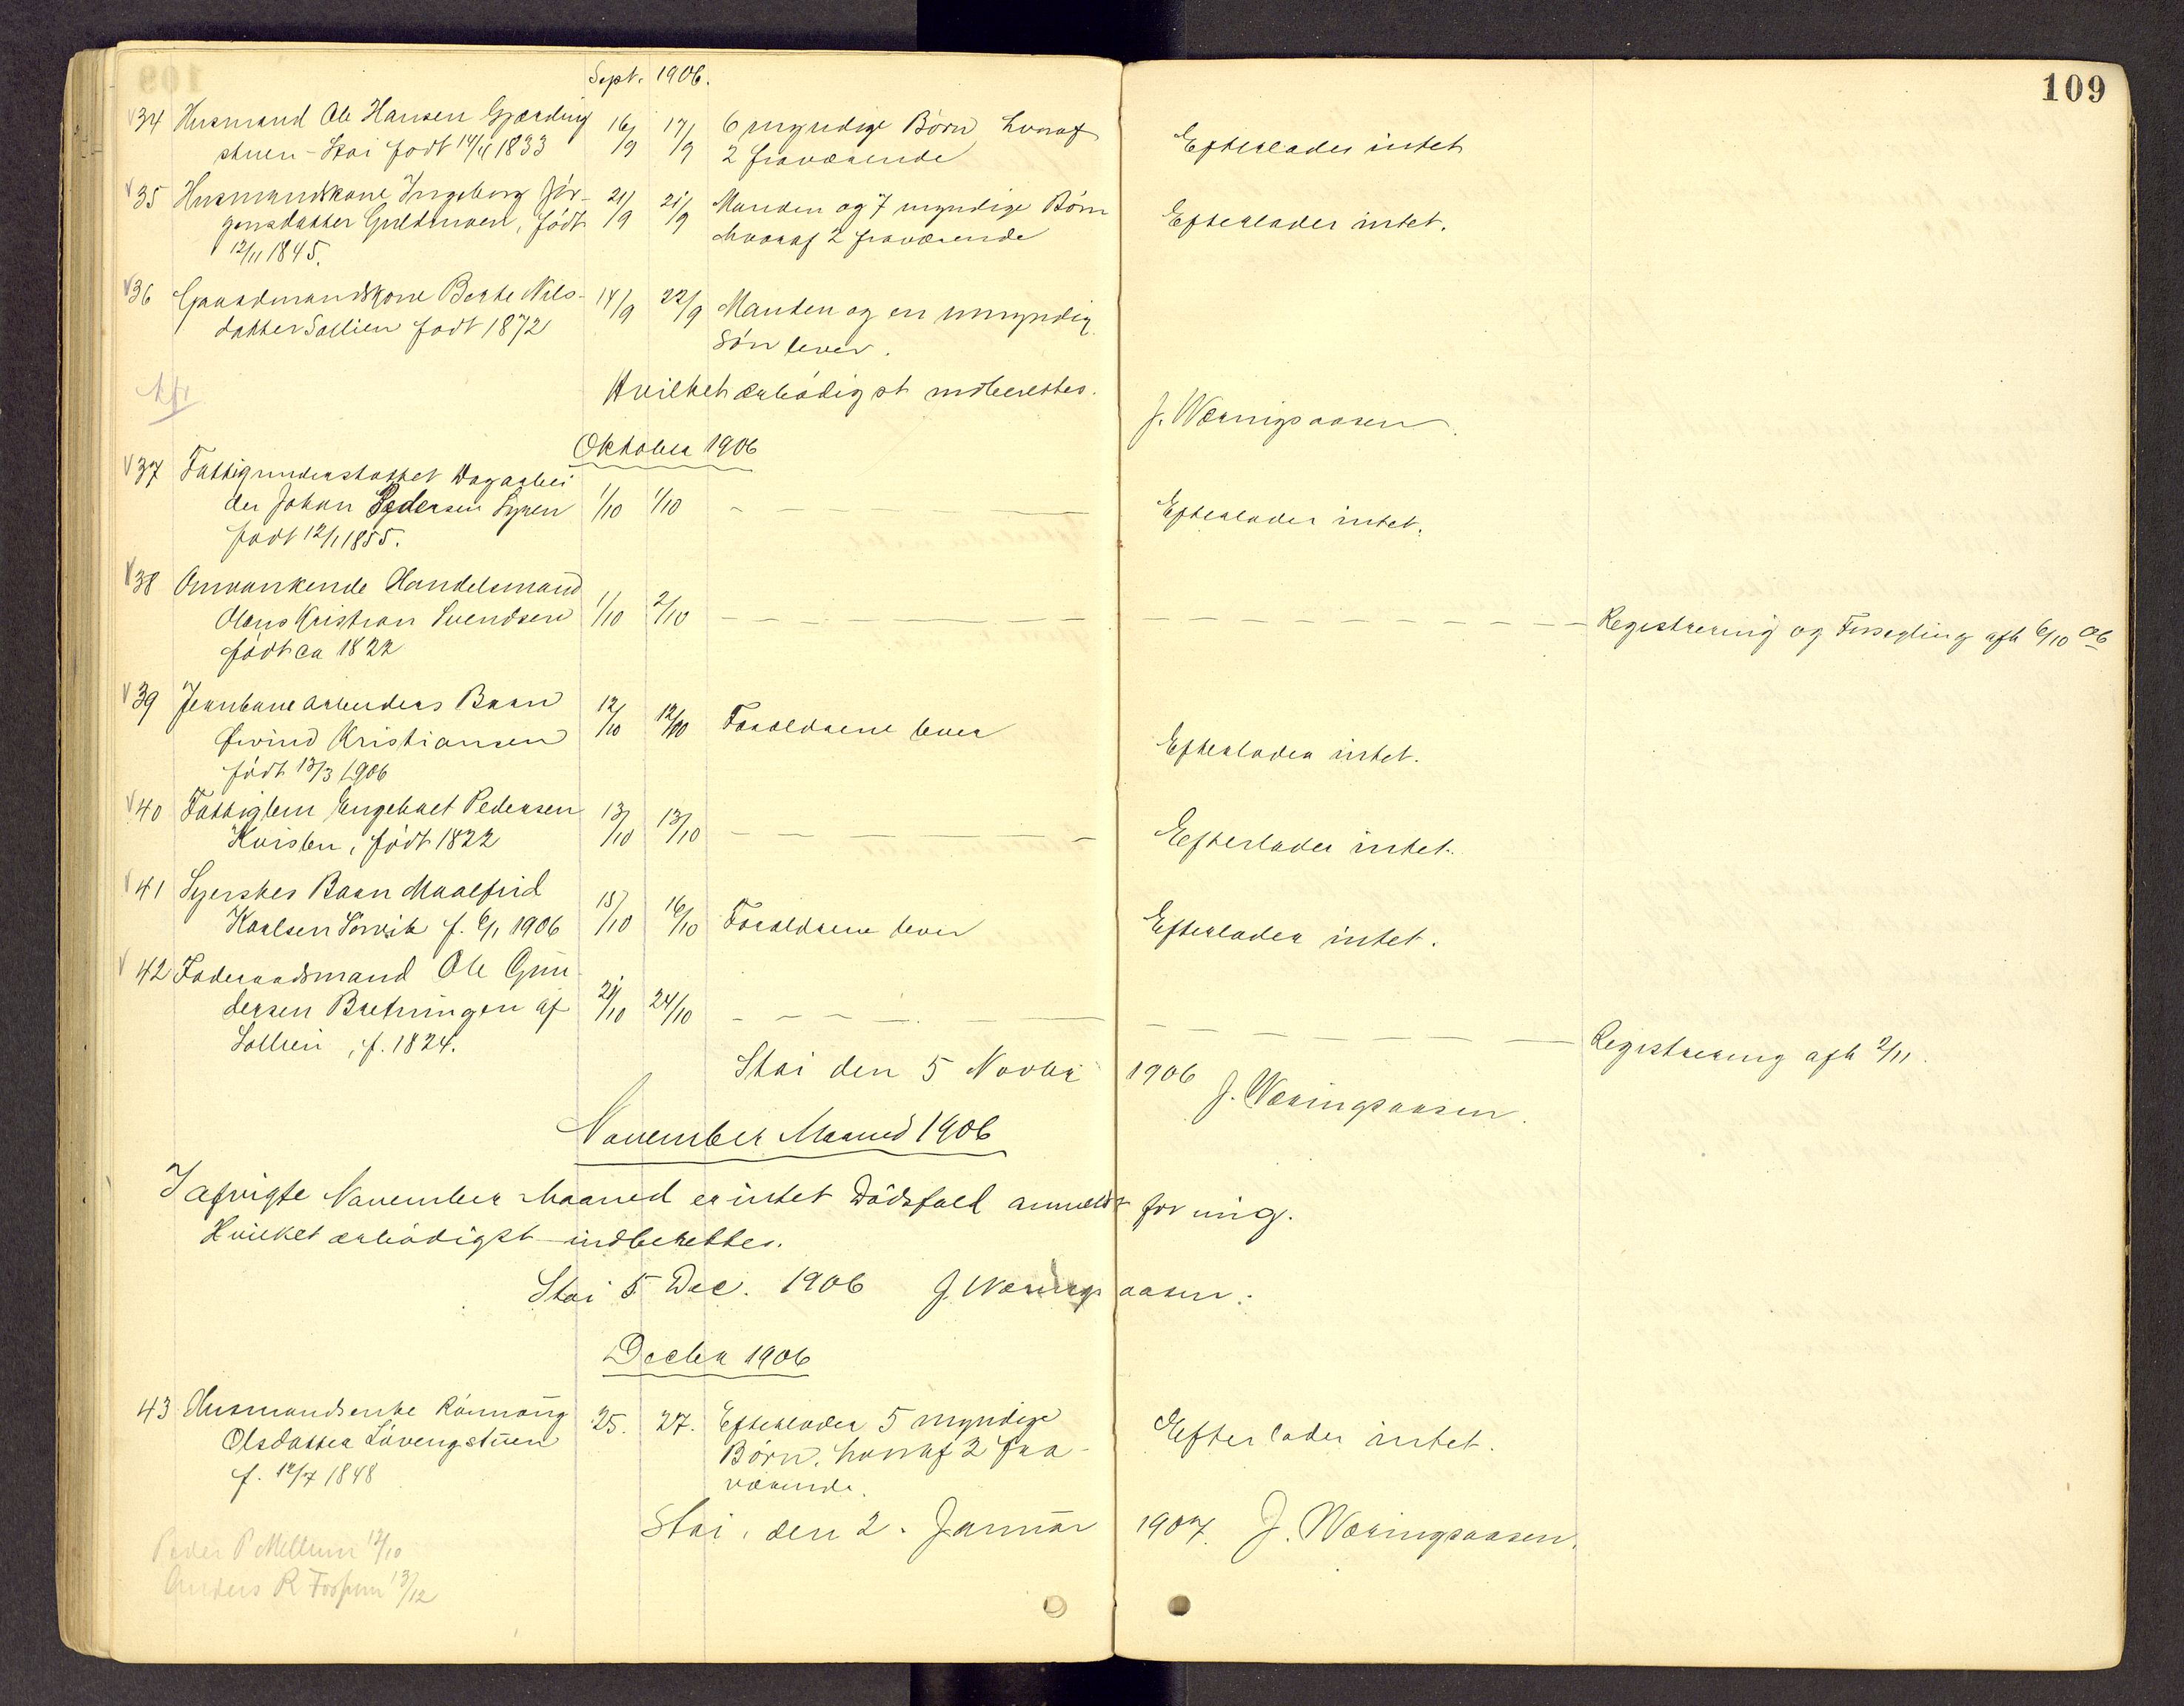 109
Sept. 1906.
34 Husmand Ole Hansen Gjærding 16/9 17/9 6 myndige Børn hvoraf Efterlader intet
stuen - Stai født 14/4 1833 2 fraværende
35 Husmandskone Ingeborg Jør- 21/9 21/9 Manden og 7 myndige Børn Efterlader intet.
gensdatter Guldmoen, født hvoraf 2 fraværende
12/11 1845.
36 Gaardmandskone Berte Nils- 14/9 22/9 Manden og en umyndig
datter Sollien født 1872 Søn lever.
Hvilket ærbødigst indberettes.
J. Wæringsaasen
Oktober 1906
37 Fattigunderstøttet Dagarbei
der Johan Pedersen 1/10 1/10 Efterlader intet.
født 12/1 1855.
38 Omvankende Handelsmand
Olaus Kristian Svendsen 1/10 2/10 Registrering og Forsegling afh 6/10 06
født ca 1822
39 Jernbanearbeiders Barn 12/10 12/10 Forældrene lever
Øivind Kristiansen Efterlader intet.
født 13/3 1906
40 Fattiglem Engebret Pedersen 13/10 13/10
Kvislen, født 1822 Eefterlader intet.
41 Syerskes Barn Maalfrid 15/10 16/10 Forældrene lever
Karlsen Sørvik f. 6/1 1906 Efterlader intet.
42 Føderaadsmand Ole Gun
dersen Bretningen af 21/10 24/10
Sollien, f. 1824. Registrering afh 2/11.
Stai den 5 Novbr 1906 J. Wæringsaasen.
November Maaned 1906
I afvigte November Maaned er intet Dødsfald anmeldt for mig.
Hvilket ærbødigst indberettes.
Stai 5 Dec. 1906 J. Wæringsaasen.
Decbr 1906
43 Husmandsenke Rønnaug 25. 27. Efterlader 5 myndige Efterlader intet.
Olsdatter Løvengstuen Børn, hvoraf 2 fra-
f. 12/7 1848 værende.
Stai, den 2. Januar 1907. J. Wæringsaasen.
Peder P Mellum 12/10
Anders R 13/12